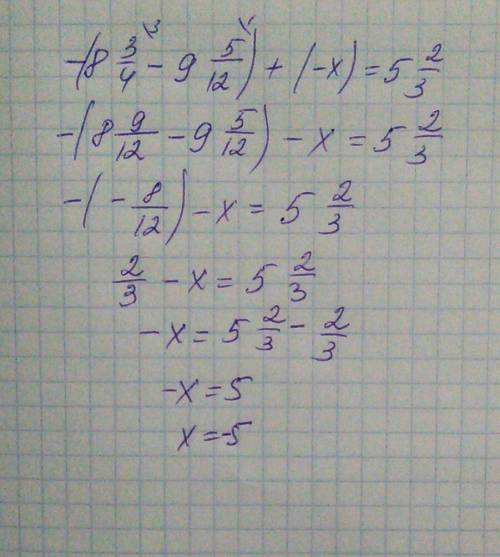 -(8 3/4 ˣ³ - 9 5/12 ˣ¹) + (-x) = 5 2/3
-(8 9/12 - 9 5/12) - x = 5 2/3
-(- 8/12) - x = 5 2/3
2/3 - x = 5 2/3
-x = 5 2/3 - 2/3
-x = 5
x = -5